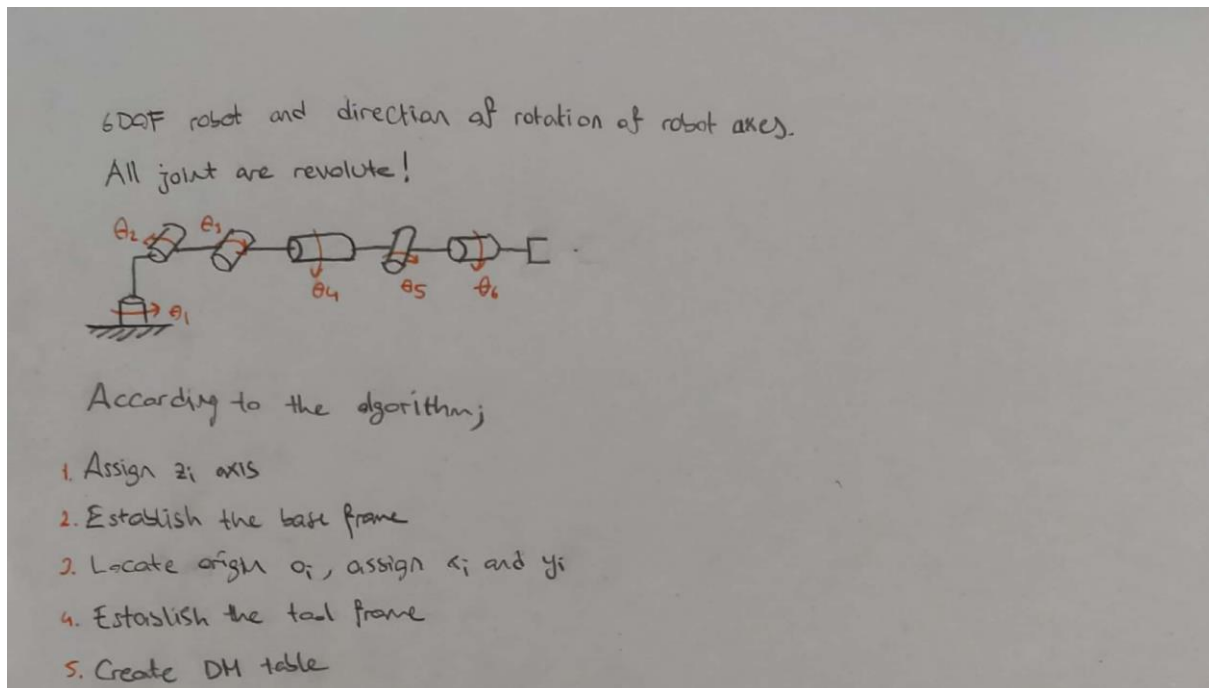 6DOF robot and direction of rotation of robot axes.
All joint are revolute!
θ2 θ3
θ4 θ5 θ6
θ1
According to the algorithm;
1. Assign zi axis
2. Establish the base frame
3. Locate origin oi, assign xi and yi
4. Establish the tool frame
5. Create DH table